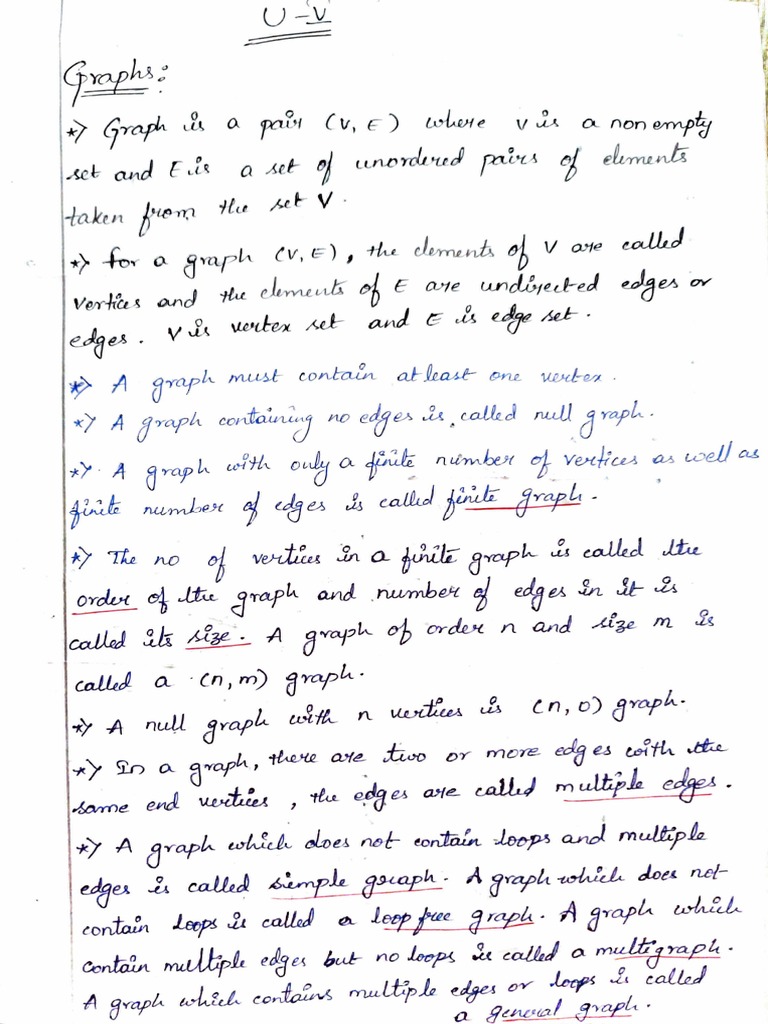 U - V
Graphs:
*> Graph is a pair (V, E) where V is a non empty
set and E is a set of unordered pairs of elements
taken from the set V.
*> for a graph (V, E), the elements of V are called
vertices and the elements of E are undirected edges or
edges. V is vertex set and E is edge set.
*> A graph must contain at least one vertex.
*> A graph containing no edges is called null graph.
*> A graph with only a finite number of vertices as well as
finite number of edges is called finite graph.
*> The no of vertices in a finite graph is called the
order of the graph and number of edges in it is
called its size. A graph of order n and size m is
called a (n, m) graph.
*> A null graph with n vertices is (n, 0) graph.
*> In a graph, there are two or more edges with the
same end vertices, the edges are called multiple edges.
*> A graph which does not contain loops and multiple
edges is called simple graph. A graph which does not
contain loops is called a loop free graph. A graph which
contain multiple edges but no loops is called a multigraph.
A graph which contains multiple edges or loops is called
a general graph.